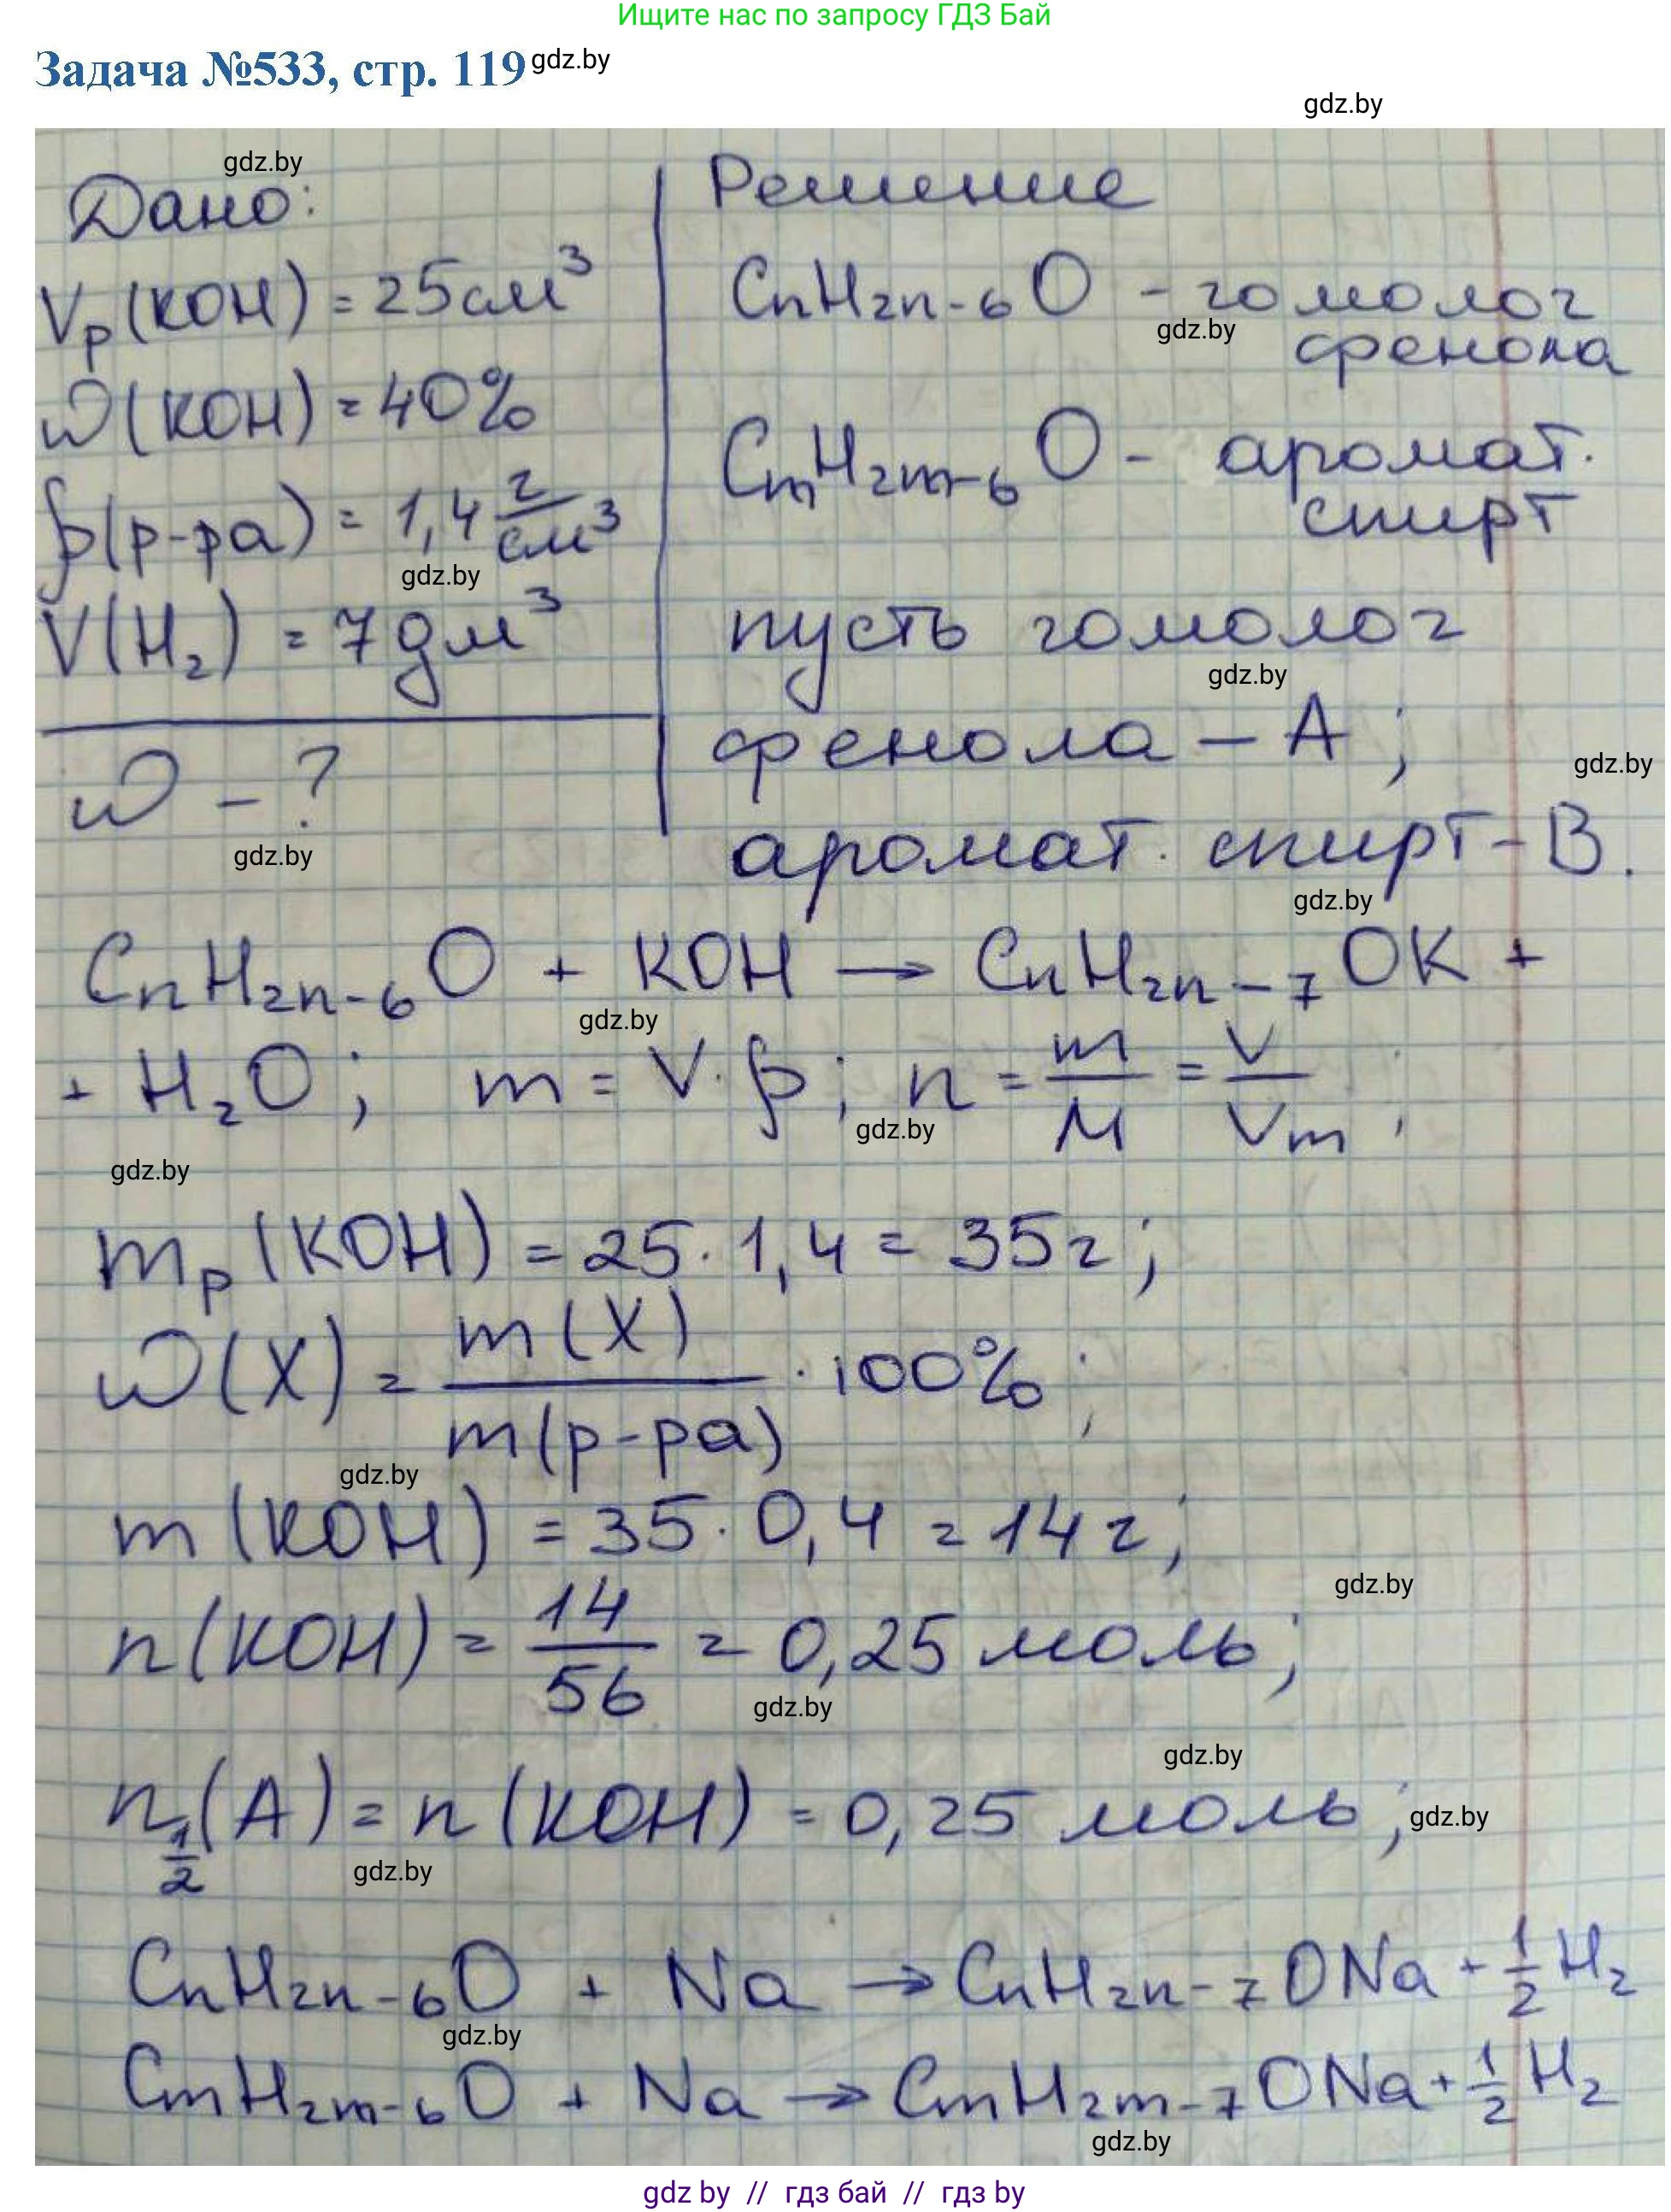 Ищите нас по запросу ГДЗ Бай
Задача №533, стр. 119 gdz.by
gdz.by
gdz.by
Дано:
Vр(KOH) = 25 см³
ω(KOH) = 40%
ρ(р-ра) = 1,4 г/см³
gdz.by
V(H₂) = 7 дм³
ω - ?
gdz.by
Решение
CnH2n-6O - гомолог
gdz.by
фенола
CmH2m-6O - аромат.
спирт
пусть гомолог
gdz.by
фенола – А;
gdz.by
аромат. спирт – В.
gdz.by
CnH2n-6O + KOH → CnH2n-7OK +
gdz.by
+ H₂O; m = V·ρ; n = m/M = V/Vm;
gdz.by
gdz.by
mр(KOH) = 25·1,4 = 35 г;
ω(X) = m(X)/m(р-ра) · 100%;
gdz.by
m(KOH) = 35·0,4 = 14 г;
gdz.by
n(KOH) = 14/56 = 0,25 моль;
gdz.by
gdz.by
n½(A) = n(KOH) = 0,25 моль;
gdz.by
gdz.by
CnH2n-6O + Na → CnH2n-7ONa + ½H₂
gdz.by
CmH2m-6O + Na → CmH2m-7ONa + ½H₂
gdz.by
gdz by // гдз бай // гдз by